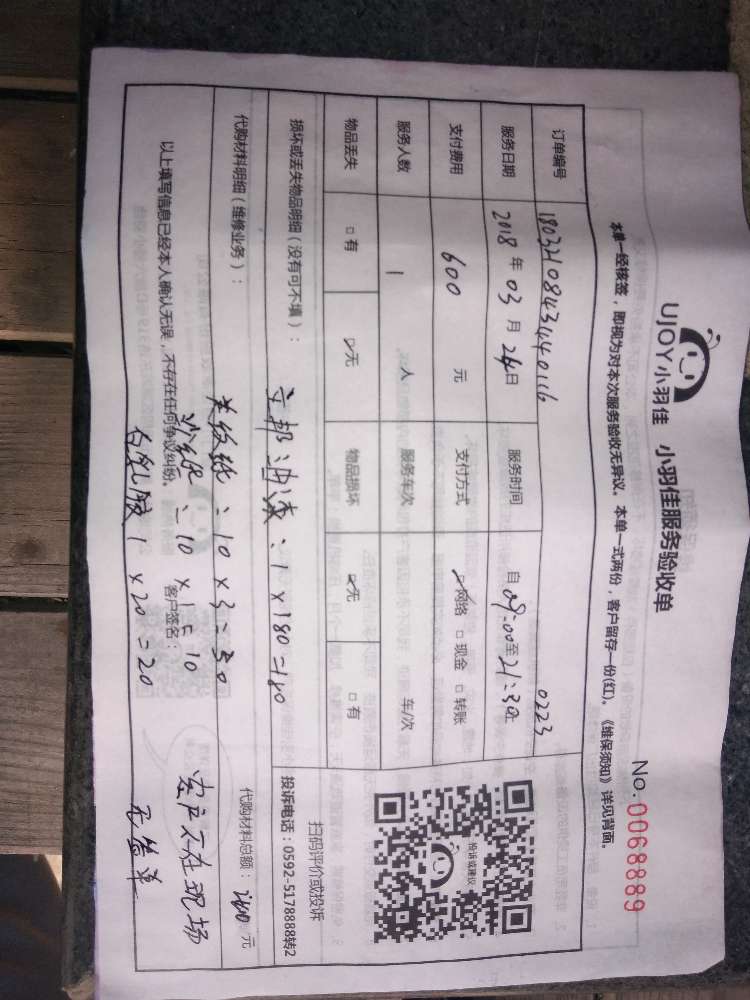 UJOY小羽佳 小羽佳服务验收单
No. 0068889
本单一经核签,即视为对本次服务验收无异议。本单一式两份,客户留存一份(红)。《维保须知》详见背面。
订单编号 0223
服务日期 2018 年 03 月 24日 服务时间 自 09:00至21:30止
支付费用 600 元 支付方式 ☑网络 □现金 □转账
服务人数 1 人 服务车次 车/次
物品丢失 □有 ☑无 物品损坏 ☑无 □有
投诉或建议
扫码评价或投诉
投诉电话:0592-5178888转2
损坏或丢失物品明细(没有可不填):
立邦油漆:1×180=180
代购材料明细(维修业务): 代购材料总额: 240 元
美纹纸:10×3=30
砂纸:10×1=10
白乳胶 1×20=20
以上填写信息已经本人确认无误,不存在任何争议纠纷。 客户签名:
客户不在现场
无签单